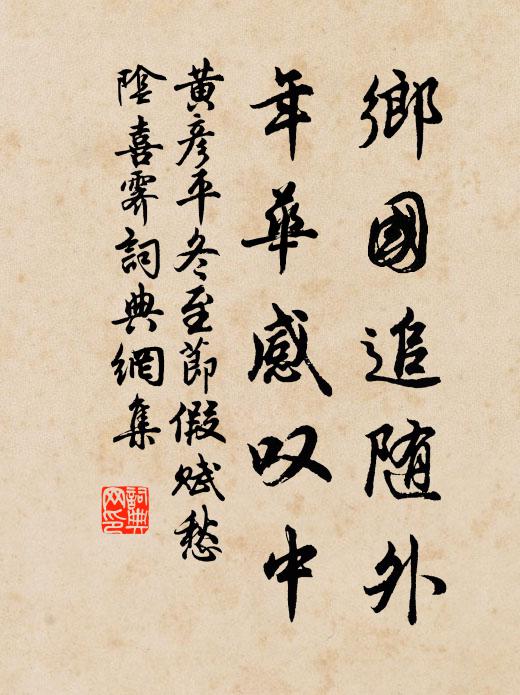 鄉國追随外
年華感叹中
黃彦平冬至節假賦愁
陰喜霽詞典網集
詞典網印